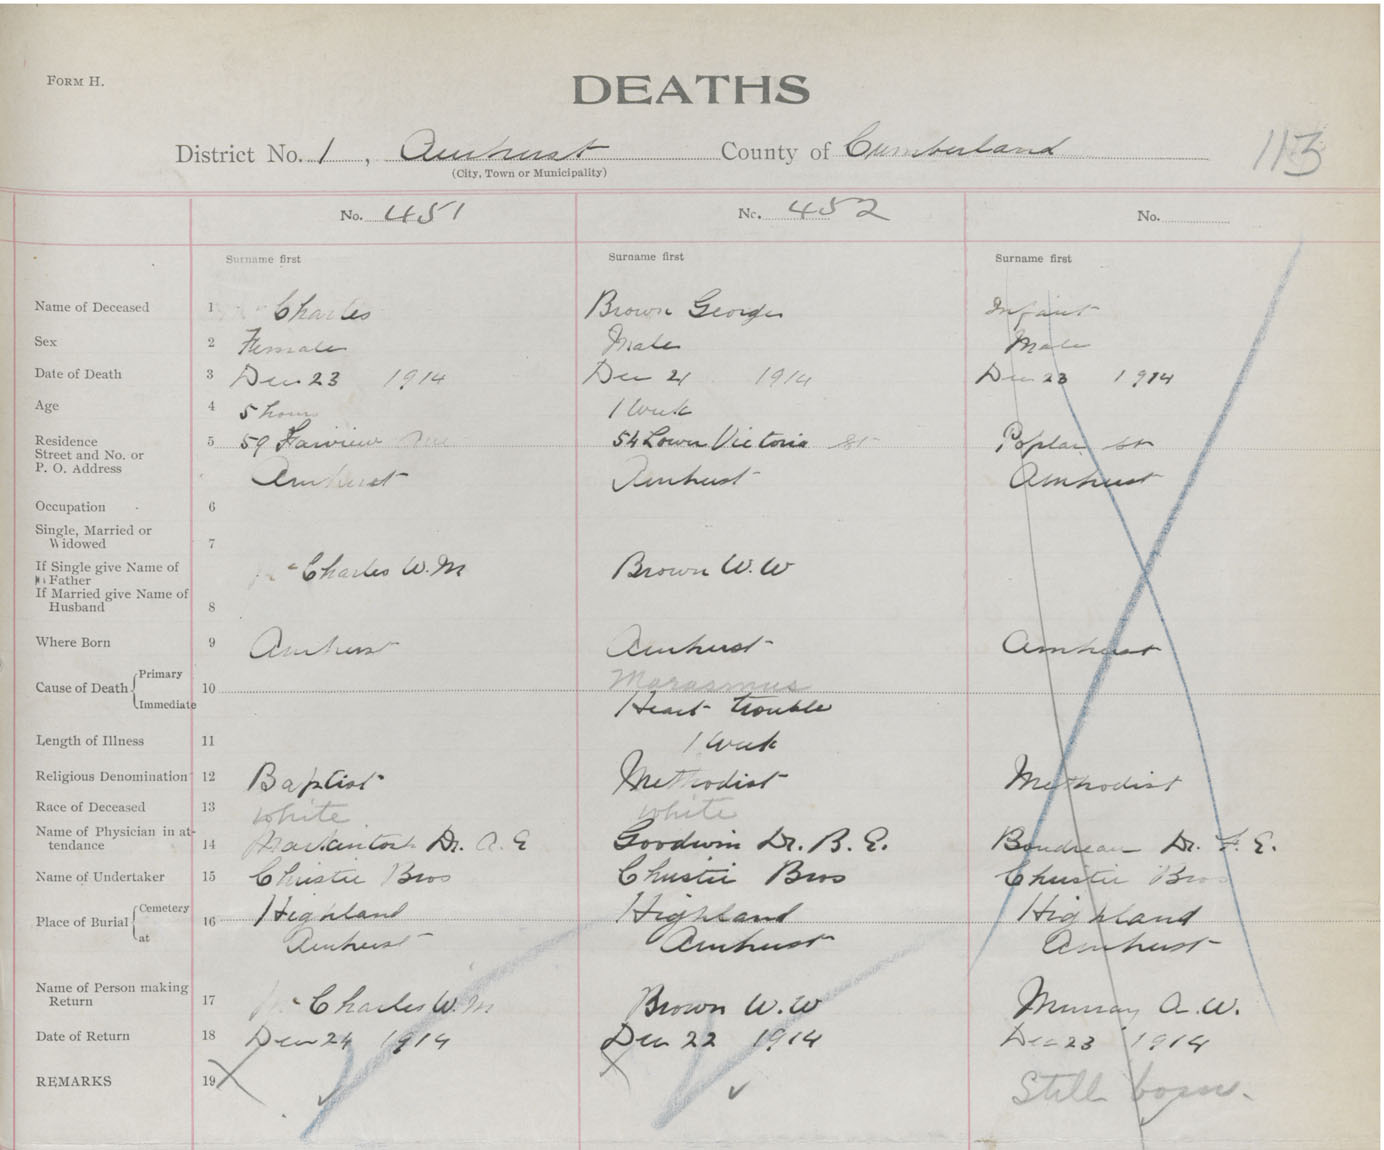 FORM H.
DEATHS
113
District No. 1, Amherst County of Cumberland
(City, Town or Municipality)
No. 451 No. 452 No.
Surname first Surname first Surname first
Name of Deceased 1 Charles Brown George Infant
Sex 2 Female Male Male
Date of Death 3 Dec 23 1914 Dec 21 1914 Dec 23 1914
Age 4 5 hours 1 Week
Residence 5 59 Fairview Ave 54 Lower Victoria St Poplar St
Street and No. or
P. O. Address Amherst Amherst Amherst
Occupation 6
Single, Married or
Widowed 7
If Single give Name of
Father Mc Charles W. M Brown W. W
If Married give Name of
Husband 8
Where Born 9 Amherst Amherst Amherst
Cause of Death Primary 10 Marasmus
Immediate Heart trouble
Length of Illness 11 1 Week
Religious Denomination 12 Baptist Methodist Methodist
Race of Deceased 13 White White
Name of Physician in at-
tendance 14 Mackintosh Dr. A. E Goodwin Dr. B. E. Boudreau Dr. F. E.
Name of Undertaker 15 Christie Bros Christie Bros Christie Bros
Place of Burial Cemetery 16 Highland Highland Highland
at Amherst Amherst Amherst
Name of Person making
Return 17 Mc Charles W. M Brown W. W Murray A. W.
Date of Return 18 Dec 24 1914 Dec 22 1914 Dec 23 1914
REMARKS 19 Still born.